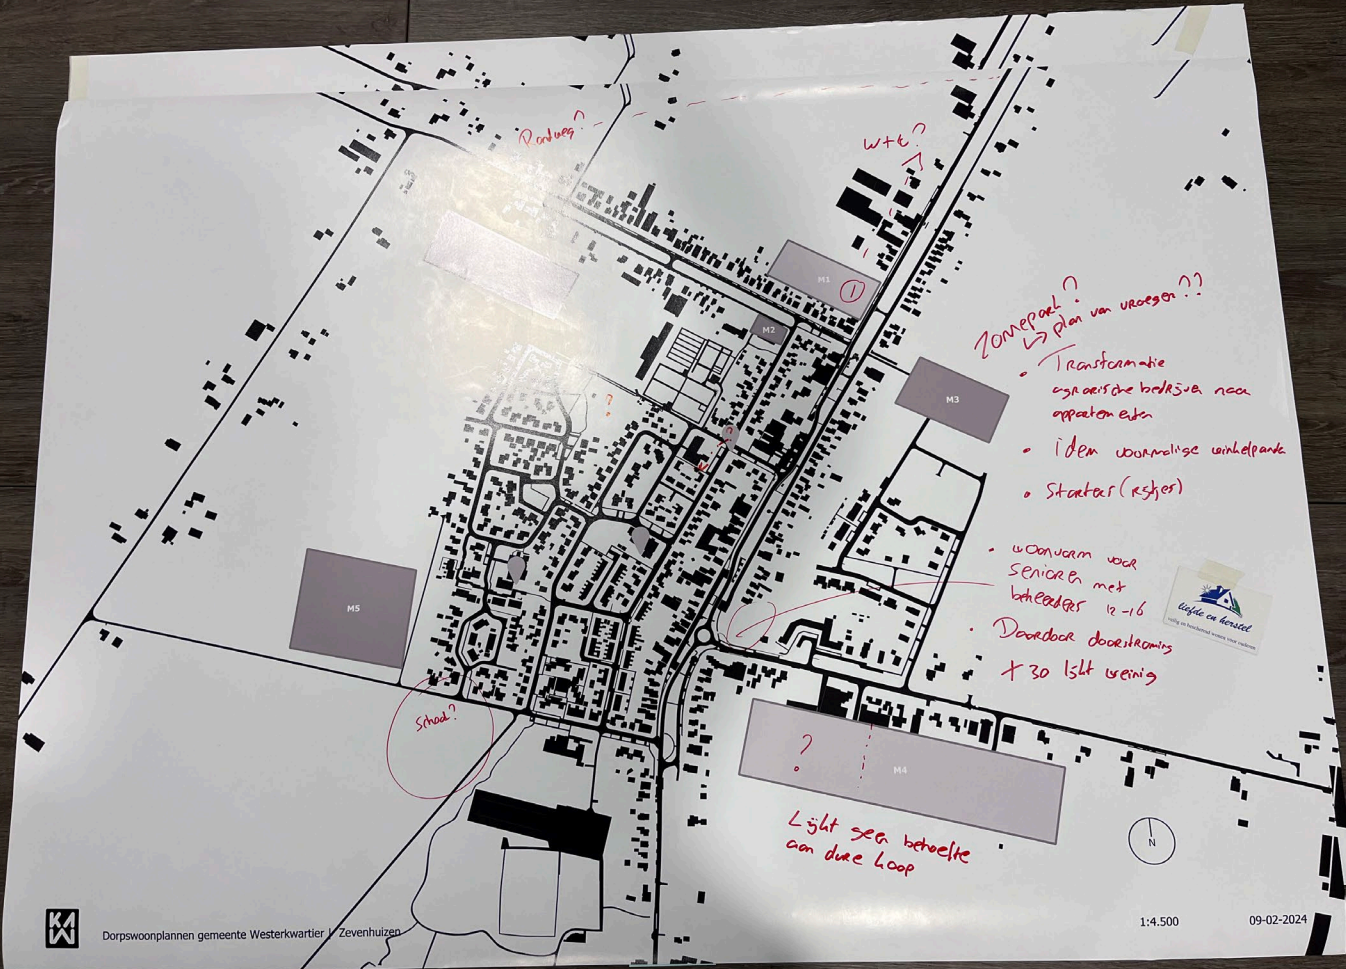 Rondweg?
W+E?
M1
1
M2
M3
M5
M4
Zonnepark?
↳ plan van vroeger??
• Transformatie
agrarische bedrijven naar
appartementen
• idem voormalige winkelpanden
• Starters (rijtjes)
• woonvorm voor
senioren met
beheerders 12-16
• Daardoor doorstroming
+ 30 lijkt weinig
liefde en herstel
?
School?
?
Lijkt geen behoefte
aan dure koop
N
KAW
Dorpswoonplannen gemeente Westerkwartier | Zevenhuizen
1:4.500
09-02-2024